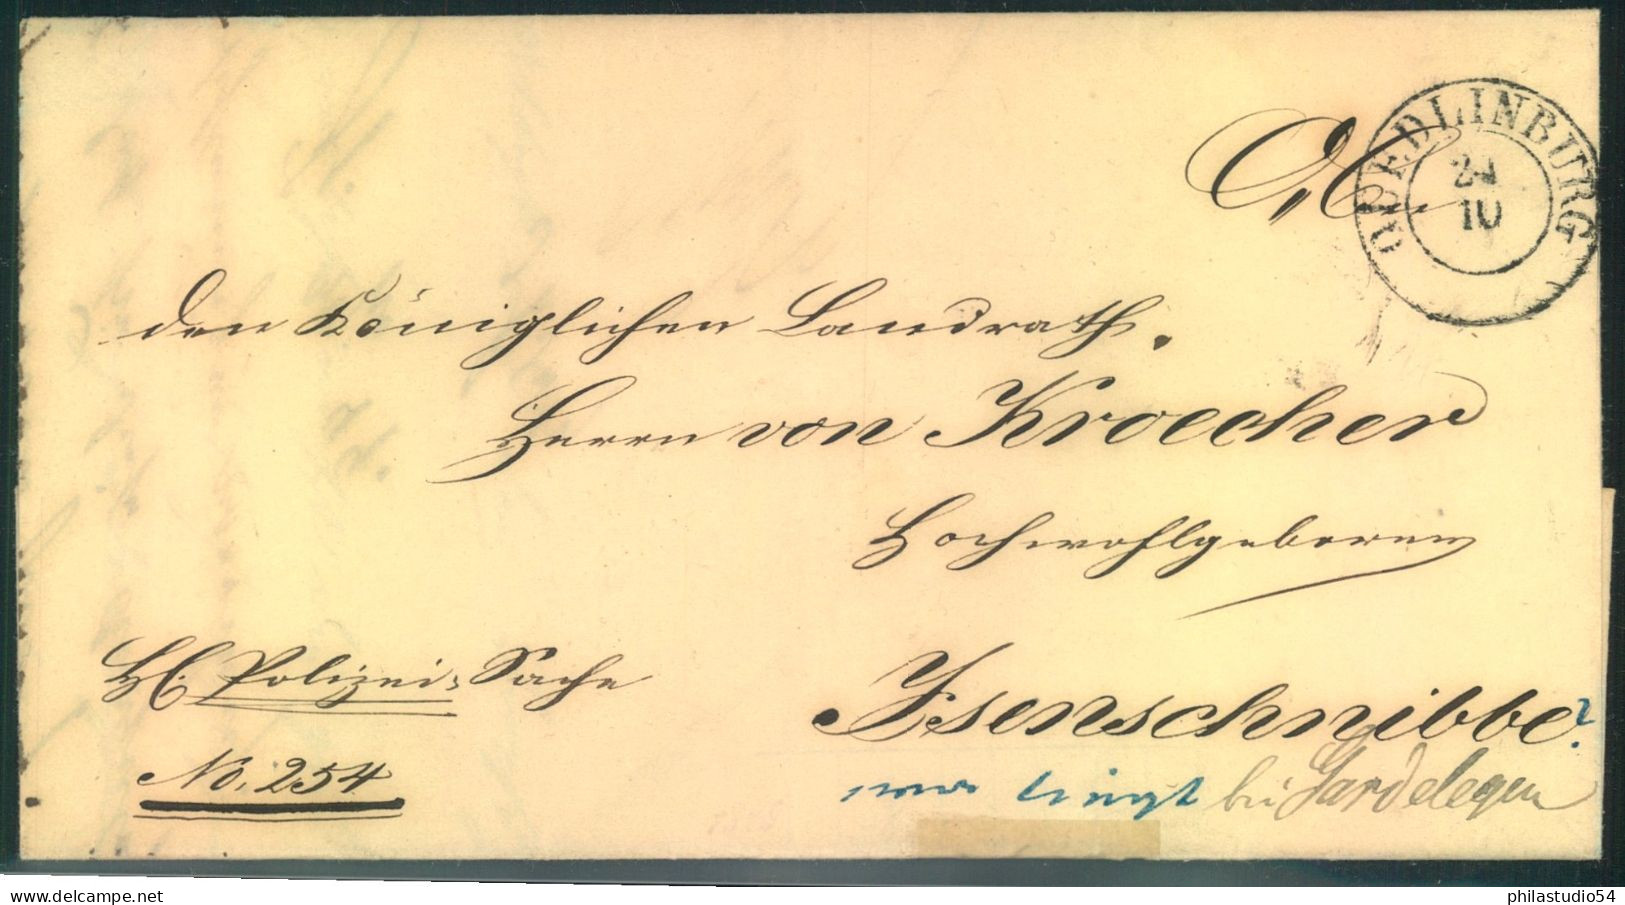 An
QUEDLINBURG
24
10
den Königlichen Landrath,
Herrn von Kroecher
Hochwohlgeboren
Hl. Polizei-Sache
No. 254
Isenschnibbe?
wo liegt bei Gardelegen
delcampe.net
philastudio54